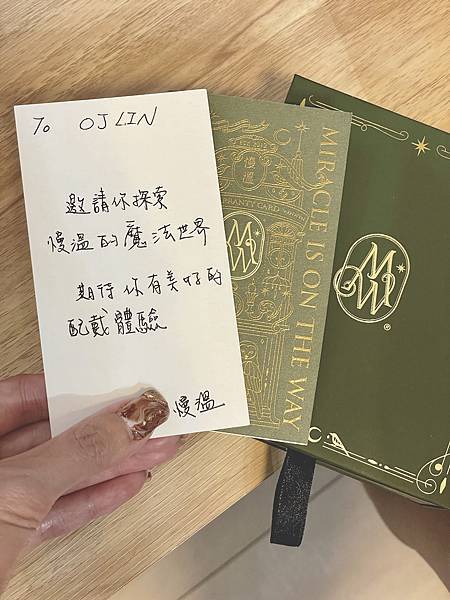 To OJ LIN
邀請你探索
慢溫的魔法世界
期待你有美好的
配戴體驗
慢溫
慢溫
WARRANTY CARD
MW
MIRACLE IS ON THE WAY
MW
®